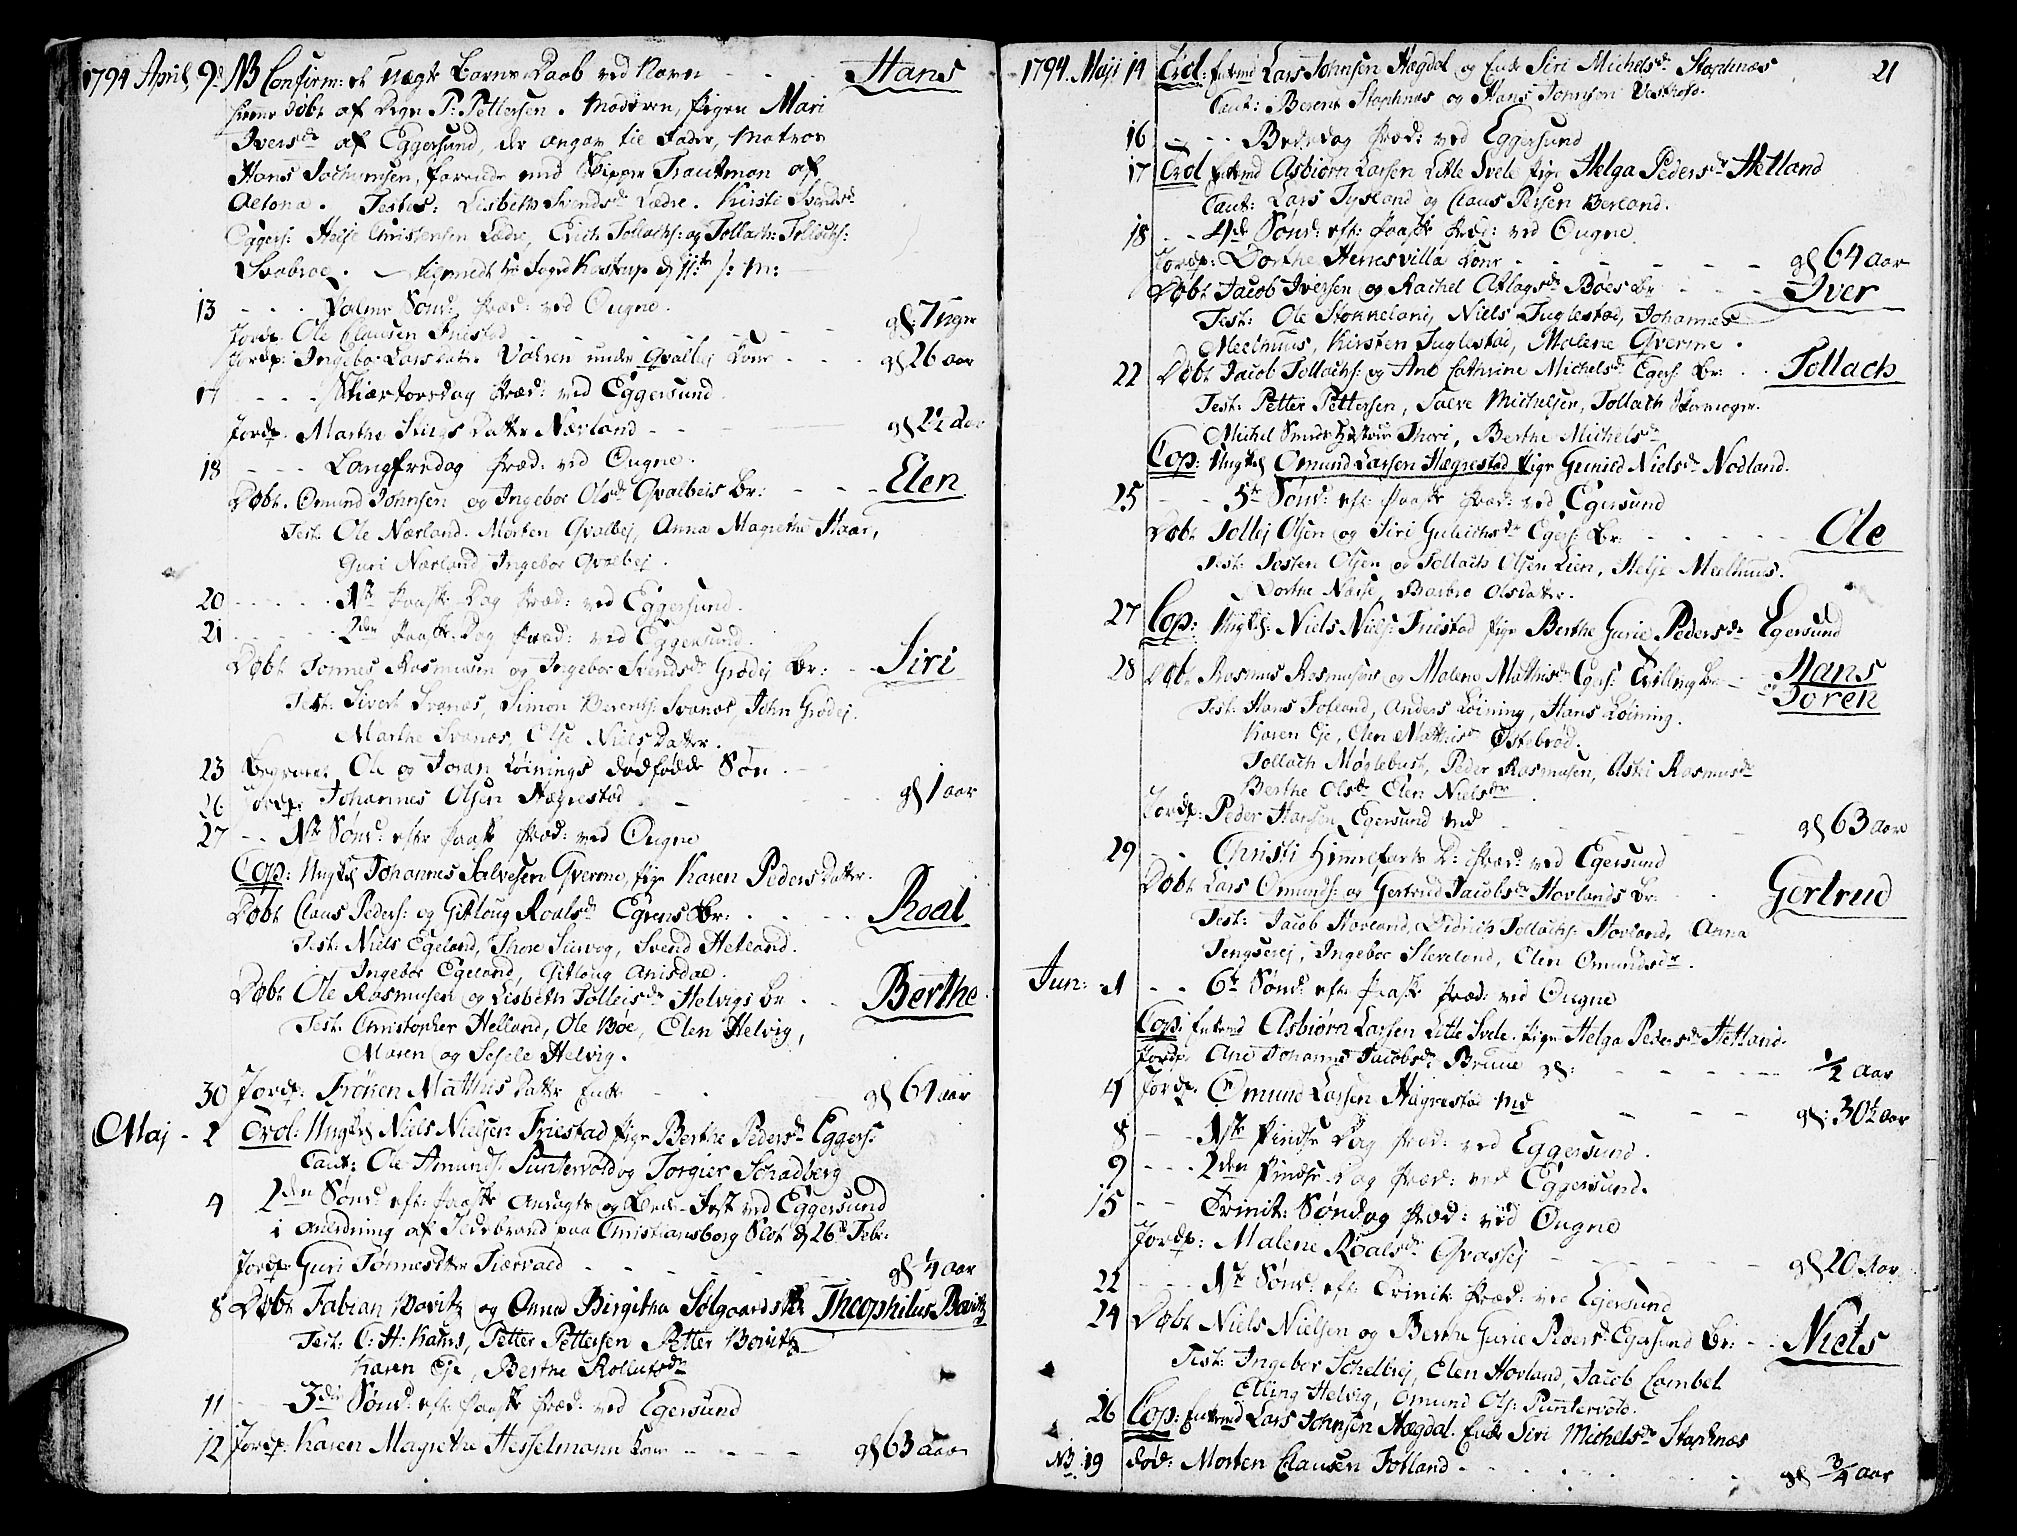 1794 April 9d NB Confirm: et Uægte Barns Daab ved Navn - - - Hans
hiemedøbt af Degn P: Pettersen. Moderen, pigen Mari
Ivers dr af Eggersund, der angav til Fader, Matros
Hans Jochumsen, farende med Skipper Trautman af
Altona. Testes: Lisbeth Svends dr Lædre. Kirsti Svends dr
Eggers: Helje Christensen Lædre, Erich Tollachs: og Tollach: Tollachs:
Svabroe.
13 - - - Palme Sønd: Præd: ved Ougne.
Jordp. Ole Clausen Friestad - - - gl: 7 uger
Jordp: Ingebor Lars Datter under Qvalbej Kone - - - gl 26 aar
17 - - - Skiærtorsdag Præd: ved Eggersund
Jordp. Marthe Stings Datter Nærland - - - gl 2½ Aar
18 - - - Langfredag Præd: ved Ougne.
Døbt. Omund Johnsen og Ingebor Ols dr Qvalbeis Br: - - - Elen
Test: Ole Nærland. Morten Qvalbej, Anna Magrethe Haar,
Guri Nærland Ingebor Qvalbej.
20 - - - 1ste Paaske Dag Præd: ved Eggersund.
21 - - - 2den Paaske Dag Præd: ved Eggersund
Døbt Tonnes Rasmusen og Ingebor Svends dr Grødej Br: - - Siri
Test: Sivert Svanæs, Simon Berents: Svanæs, John Grødej.
Marthe Svanæs, Elje Niels Datter.
23 Begravet Ole og Joran Løinings dødfødde Søn.
26 Jordp: Johannes Olsen Hægrestad - - - gl 1 aar
27 - - 1ste Sønd: efter Paaske Præd: ved Ougne
Cop: Ungkl Johannes Salvesen Qverme, pige Karen Peders Datter.
Døbt Claus Peders: og Gitloug Roals dr Egrens Br: - - - Roal
Test: Niels Egeland, Thore Sirevog, Svend Hetland.
Ingebor Egeland, Gitloug Anisdal.
Døbt Ole Rasmusen og Lisbeth Tolleis dr Helvigs Br - - Berthe
Test: Christopher Helland, Ole Bøe, Elen Helvig,
Maren og Sesele Helvig.
30 Jordp: Frøken Mathis Datter Enke - - - gl 64 aar
Maj - 2 Trol: Ungkl Niels Nielsen Friestad pige Berthe Peders dr Eggers:
Caut: Ole Amunds: Puntervold og Torgier Schadberg
4 2den Sønd: eft: Paaske Ansagte og Bede-Fest ved Eggersund
i anledning af Ildebrand paa Christiansborg Slot d 26d Febr:
Jordp: Guri Tønnesdtter Tiærvald - - - gl ¼ aar
8 Døbt Fabian Bovitz og Anna Birgitha Sølgaards Br Theophilus Bovitz
Test: C: H: Kahrs, Petter Pettersen Petter Bovitz
Karen Eje, Berthe Rollufs dr
11 - - 3die Sønd: eft: Paaske Præd: ved Egersund
12 Jordp: Karen Magrethe Hesselmann Kone - - - gl 63 aar
1794. Maji 14 Trol: Enkemd Lars Johnsen Hægdal og Enke Siri Michels dr Staphnæs 21
Caut: Berent Staphnæs og Hans Johnson
16 - - - Bededag Præd: ved Eggersund
17 Trol Enkemd Asbiørn Larsen Litle Svele pige Helga Peders dr Hetland
Caut: Lars Tysland og Claus Persen Berland.
18 - - 4de Sønd: eft: Paaske Præd: ved Ougne.
Jordp: Dorthe Henesvilla Kone - - - gl 64 aar
Døbt Jacob Iversen og Rachel Aslags dr Bøes Br - - - Iver
Test: Ole Stokkeland, Niels Fuglestad, Johannes
Meelhuus, Kirsten Fuglestad, Malene Qverme.
22 Døbt Jacob Tollachs: og Ane Cathrine Michels dr Egers: Br: - - Tollach
Test: Petter Pettersen, Salve Michelsen, Tollach Skomager.
Michel Smeds Hustrue Thori, Berthe Michels dr
Cop: Ungkl Omund Larsen Hægrestad Pige Gunild Niels dr Nodland.
25 - - - 5te Sønd: eft: Paaske Præd: ved Egersund
Døbt Tollej Olsen og Siri Guleichs dr Egers: Br: - - - Ole
Test: Tosten Olsen og Tollach Olsen Lien, Helje Meelhuus.
Dorthe Næse, Barbro Olsdatter.
27 Cop: Ungkl: Niels Niels: Friestad pige Berthe Gurie Peders dr Egersund
28 Døbt Rasmus Rasmusen og Malene Mathis dr Egers: Tvilling Br: - Hans
og Joren
Test: Hans Fotland, Anders Løining, Hans Løining.
Karen Eje, Elen Mathis dr Østebrød.
Tollach Møglebust, Peder Rasmusen, Rasmus dr
Berthe Ols dr Elen Niels dr
Jordp: Peder Hansen Egersund Md - - - gl 63 aar
29 - - Christi Himmelfarts D: Præd: ved Egersund
Døbt Lars Omunds: og Gertrud Jacobs dr Hovlands Br: - - Gertrud
Test: Jacob Hovland, Didrich Tollachs: Hovland, Anna
Tengserej, Ingebor Sleveland, Elen Omunds dr.
Jun: 1 - - 6te Sønd: eft: Paaske Præd: ved Ougne
Cop: Enkemd Asbiørn Larsen Litle Svele. pige Helga Peders dr Hetland.
Jordp: Ane Johanne Jacobs dr Bruue gl: - - - ½ aar
4 Jordp: Omund Larsen Hægrestad Md - - - gl: 30½ aar
8 - - - 1ste Pindse Dag Præd: ved Eggersund.
9 - - - 2den Pindse Dag Præd: ved Eggersund.
15 - - Trinit: Søndag Præd: ved Ougne
Jordp: Malene Roals dr Qvassej - - - gl 20 Aar
22 - - - 1ste Sønd: eft: Trinit: Præd: ved Egersund
24 Døbt Niels Nielsen og Berthe Gurie Peders dr Egersund Br: - - Niels
Test: Ingebor Schelbrej, Elen Hovland, Jacob Lambel
Elling Helvig, Omund Ols: Puntervold.
26 Cop: Enkemd Lars Johnsen Hægdal. Enke Siri Michels dr Staphnæs
NB: 19 død: Morten Clausen Fotland - - - gl ¾ aar